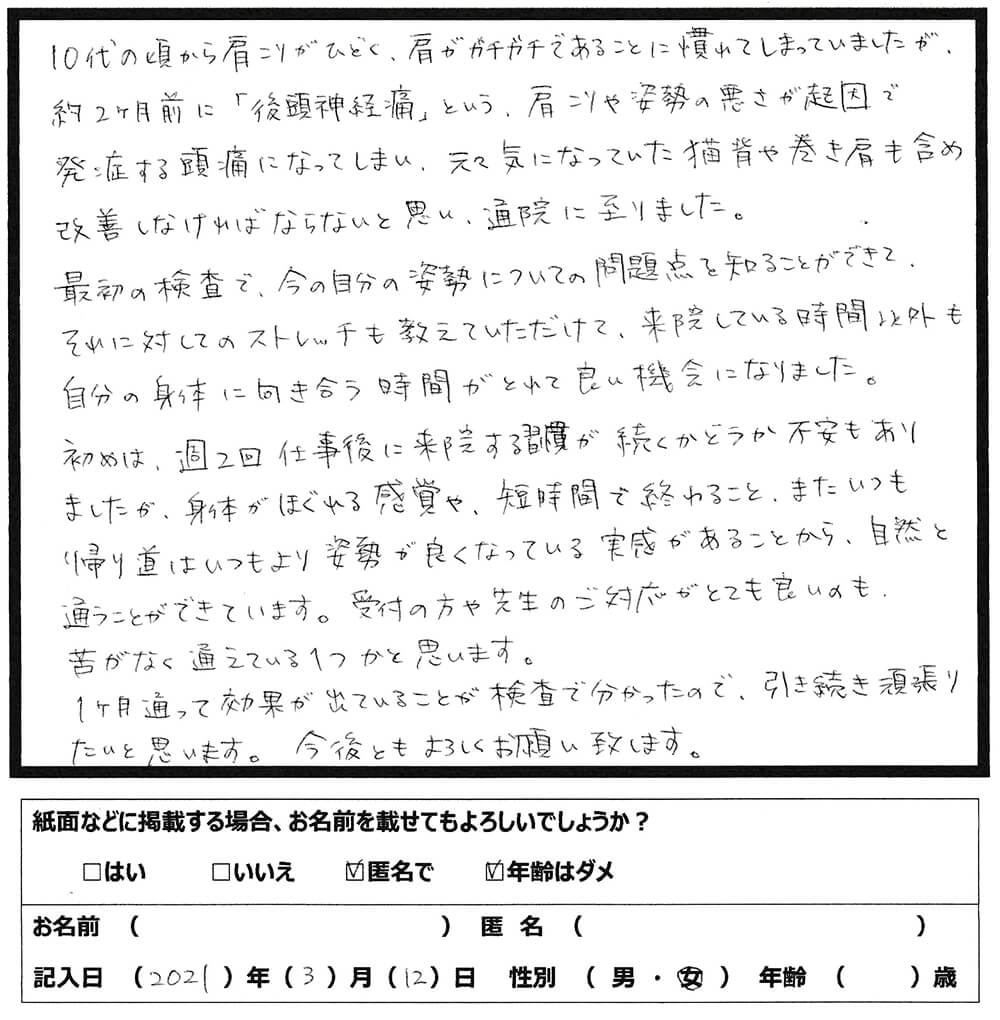 10代の頃から肩こりがひどく、肩がガチガチであることに慣れてしまっていましたが、
約2ヶ月前に「後頭神経痛」という、肩こりや姿勢の悪さが起因で
発症する頭痛になってしまい、元々気になっていた猫背や巻き肩も含め
改善しなければならないと思い、通院に至りました。
最初の検査で、今の自分の姿勢についての問題点を知ることができて、
それに対してのストレッチも教えていただけて、来院している時間以外も
自分の身体に向き合う時間がとれて良い機会になりました。
初めは、週2回仕事後に来院する習慣が続くかどうか不安もあり
ましたが、身体がほぐれる感覚や、短時間で終わること、またいつも
帰り道はいつもより姿勢が良くなっている実感があることから、自然と
通うことができています。受付の方や先生のご対応がとても良いのも、
苦がなく通えている1つかと思います。
1ヶ月通って効果が出ていることが検査で分かったので、引き続き頑張り
たいと思います。今後ともよろしくお願い致します。
紙面などに掲載する場合、お名前を載せてもよろしいでしょうか？
□はい □いいえ ☑匿名で ☑年齢はダメ
お名前 （ ） 匿名 （ ）
記入日 （2021）年（3）月（12）日 性別 （男・女） 年齢 （ ）歳